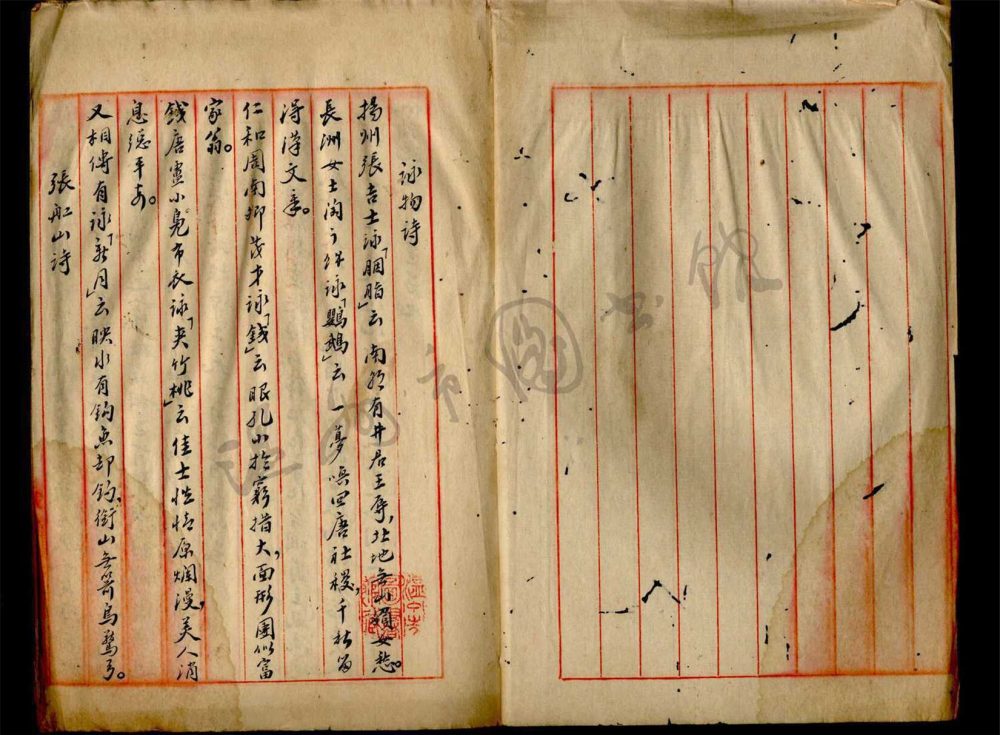 詠物詩
揚州張吉士詠「胭脂」云 南朝有井君王辱,北地無山婦女愁。
長洲女士陶 詠「鸚鵡」云 一夢喚回唐社稷,千秋留
得漢文章。
仁和周南卿茂才詠「錢」云眼孔小於窮措大,面形團似富
家翁。
錢唐盧小鳧布衣詠「夾竹桃」云佳士性情原爛漫,美人消
息總平安。
又相傳有詠「新月」云映水有鈎魚却釣,銜山無箭鳥驚弓。
張船山詩
溫州市圖書館